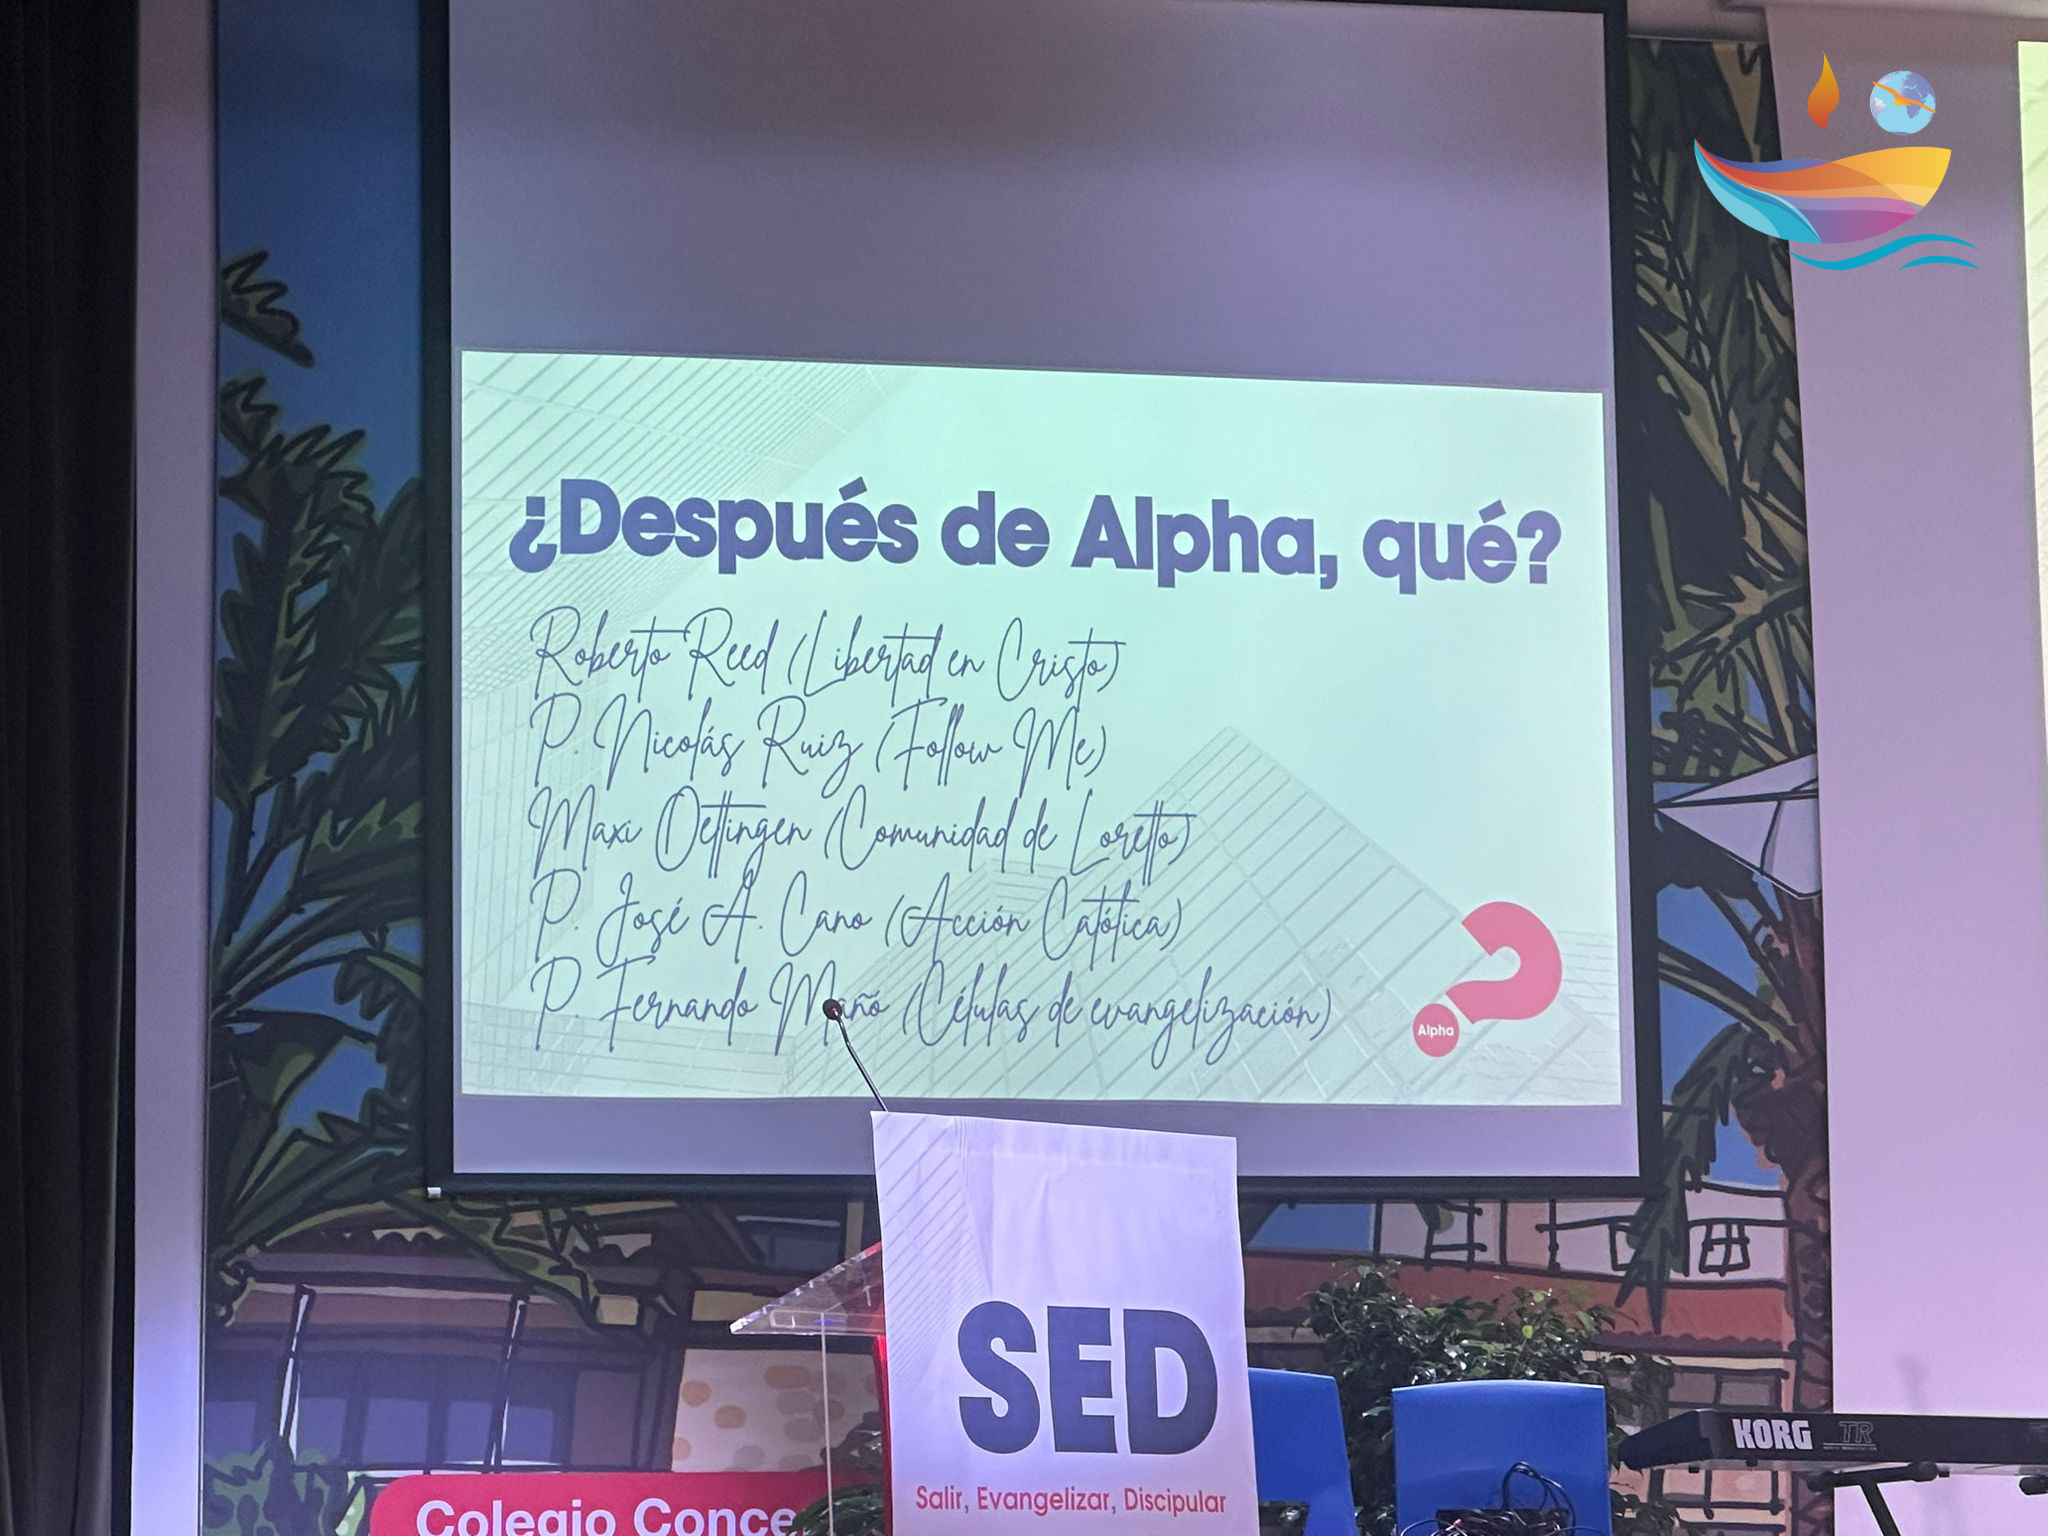 ¿Después de Alpha, qué?
Roberto Reed (Libertad en Cristo)
P. Nicolás Ruiz (Follow Me)
Maxi Oettingen (Comunidad de Loretto)
P. José A. Cano (Acción Católica)
P. Fernando Mañó (Células de evangelización)
Alpha
SED
Salir, Evangelizar, Discipular
KORG TR
Colegio Conce